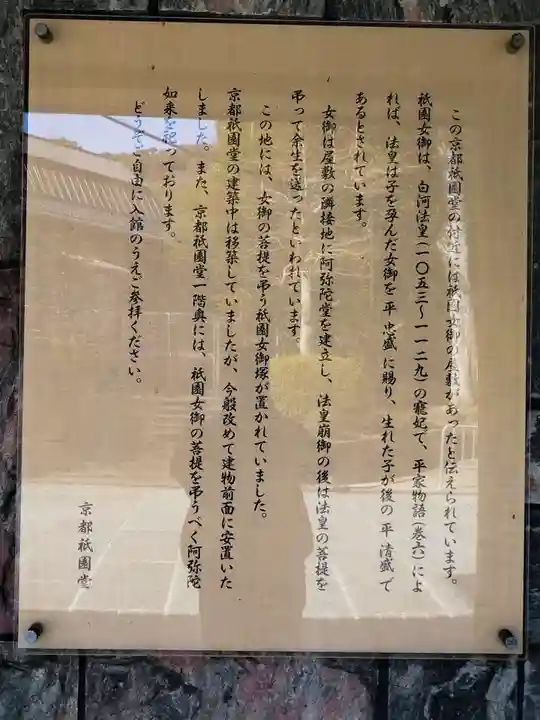 この京都祇園堂の付近には祇園女御の屋敷があったと伝えられています。
祇園女御は、白河法皇(一〇五三~一一二九)の寵妃で、平家物語(巻六)によ
れば、法皇は子を孕んだ女御を平忠盛に賜り、生れた子が後の平清盛で
あるとされています。
女御は屋敷の隣接地に阿弥陀堂を建立し、法皇崩御の後は法皇の菩提を
弔って余生を送ったといわれています。
この地には、女御の菩提を弔う祇園女御塚が置かれていました。
京都祇園堂の建築中は移築していましたが、今般改めて建物前面に安置いた
しました。また、京都祇園堂一階奥には、祇園女御の菩提を弔うべく阿弥陀
如来を祀っております。
どうぞご自由に入館のうえご参拝ください。
京都祇園堂